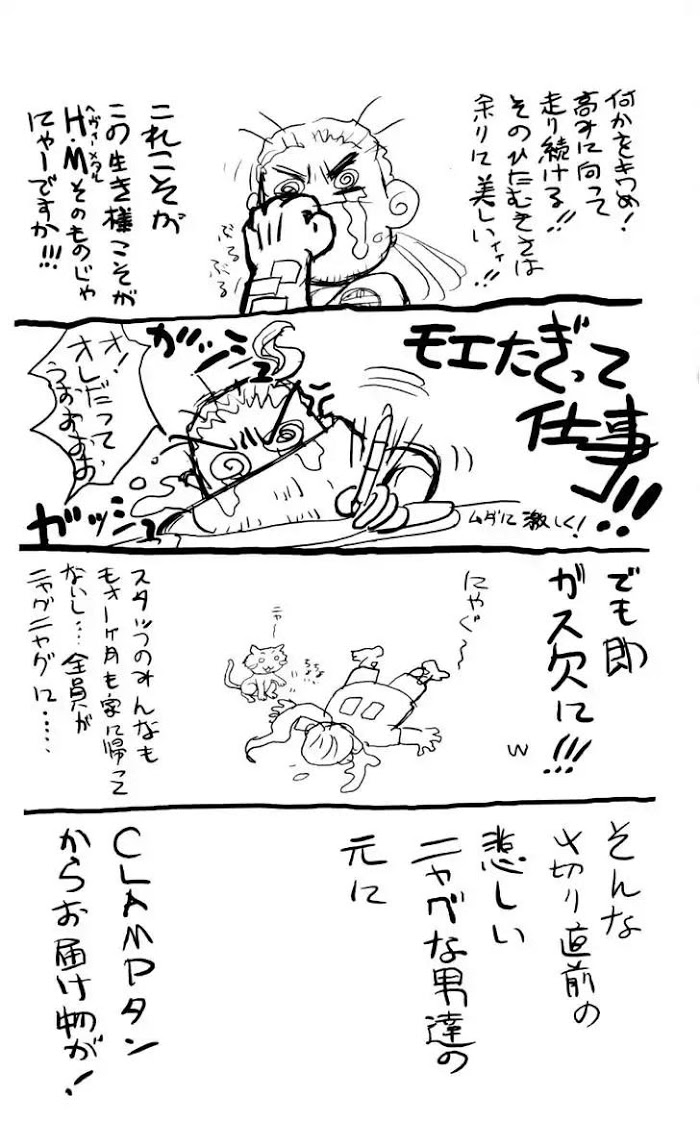 何かをきわめ!
高みに向って
走り続ける!!
そのひたむきさは
余りに美しいィィ!!
ぶるぶる
これこそが
この生き様こそが
ヘヴィーメタル
H・Mそのものじゃ
にゃーですか!!!
モエたぎって
仕事!!!
ガッシュ
オ!
オレだって
うおおおお
ガッシュ
ムダに激しく!
でも即
ガス欠に!!!
w
にゃぐ〜
ニャー
スタッフのみんなも
もォ一ヶ月も家に帰って
ないし…全員が
ニャグニャグに……
そんな
〆切り直前の
悲しい
ニャグな男達の
元に
CLAMPタン
からお届け物が!